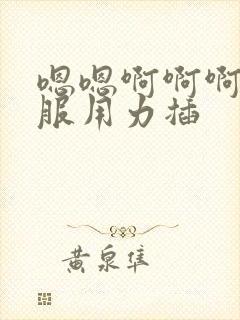 嗯嗯啊啊啊
服用力插
黄泉隼